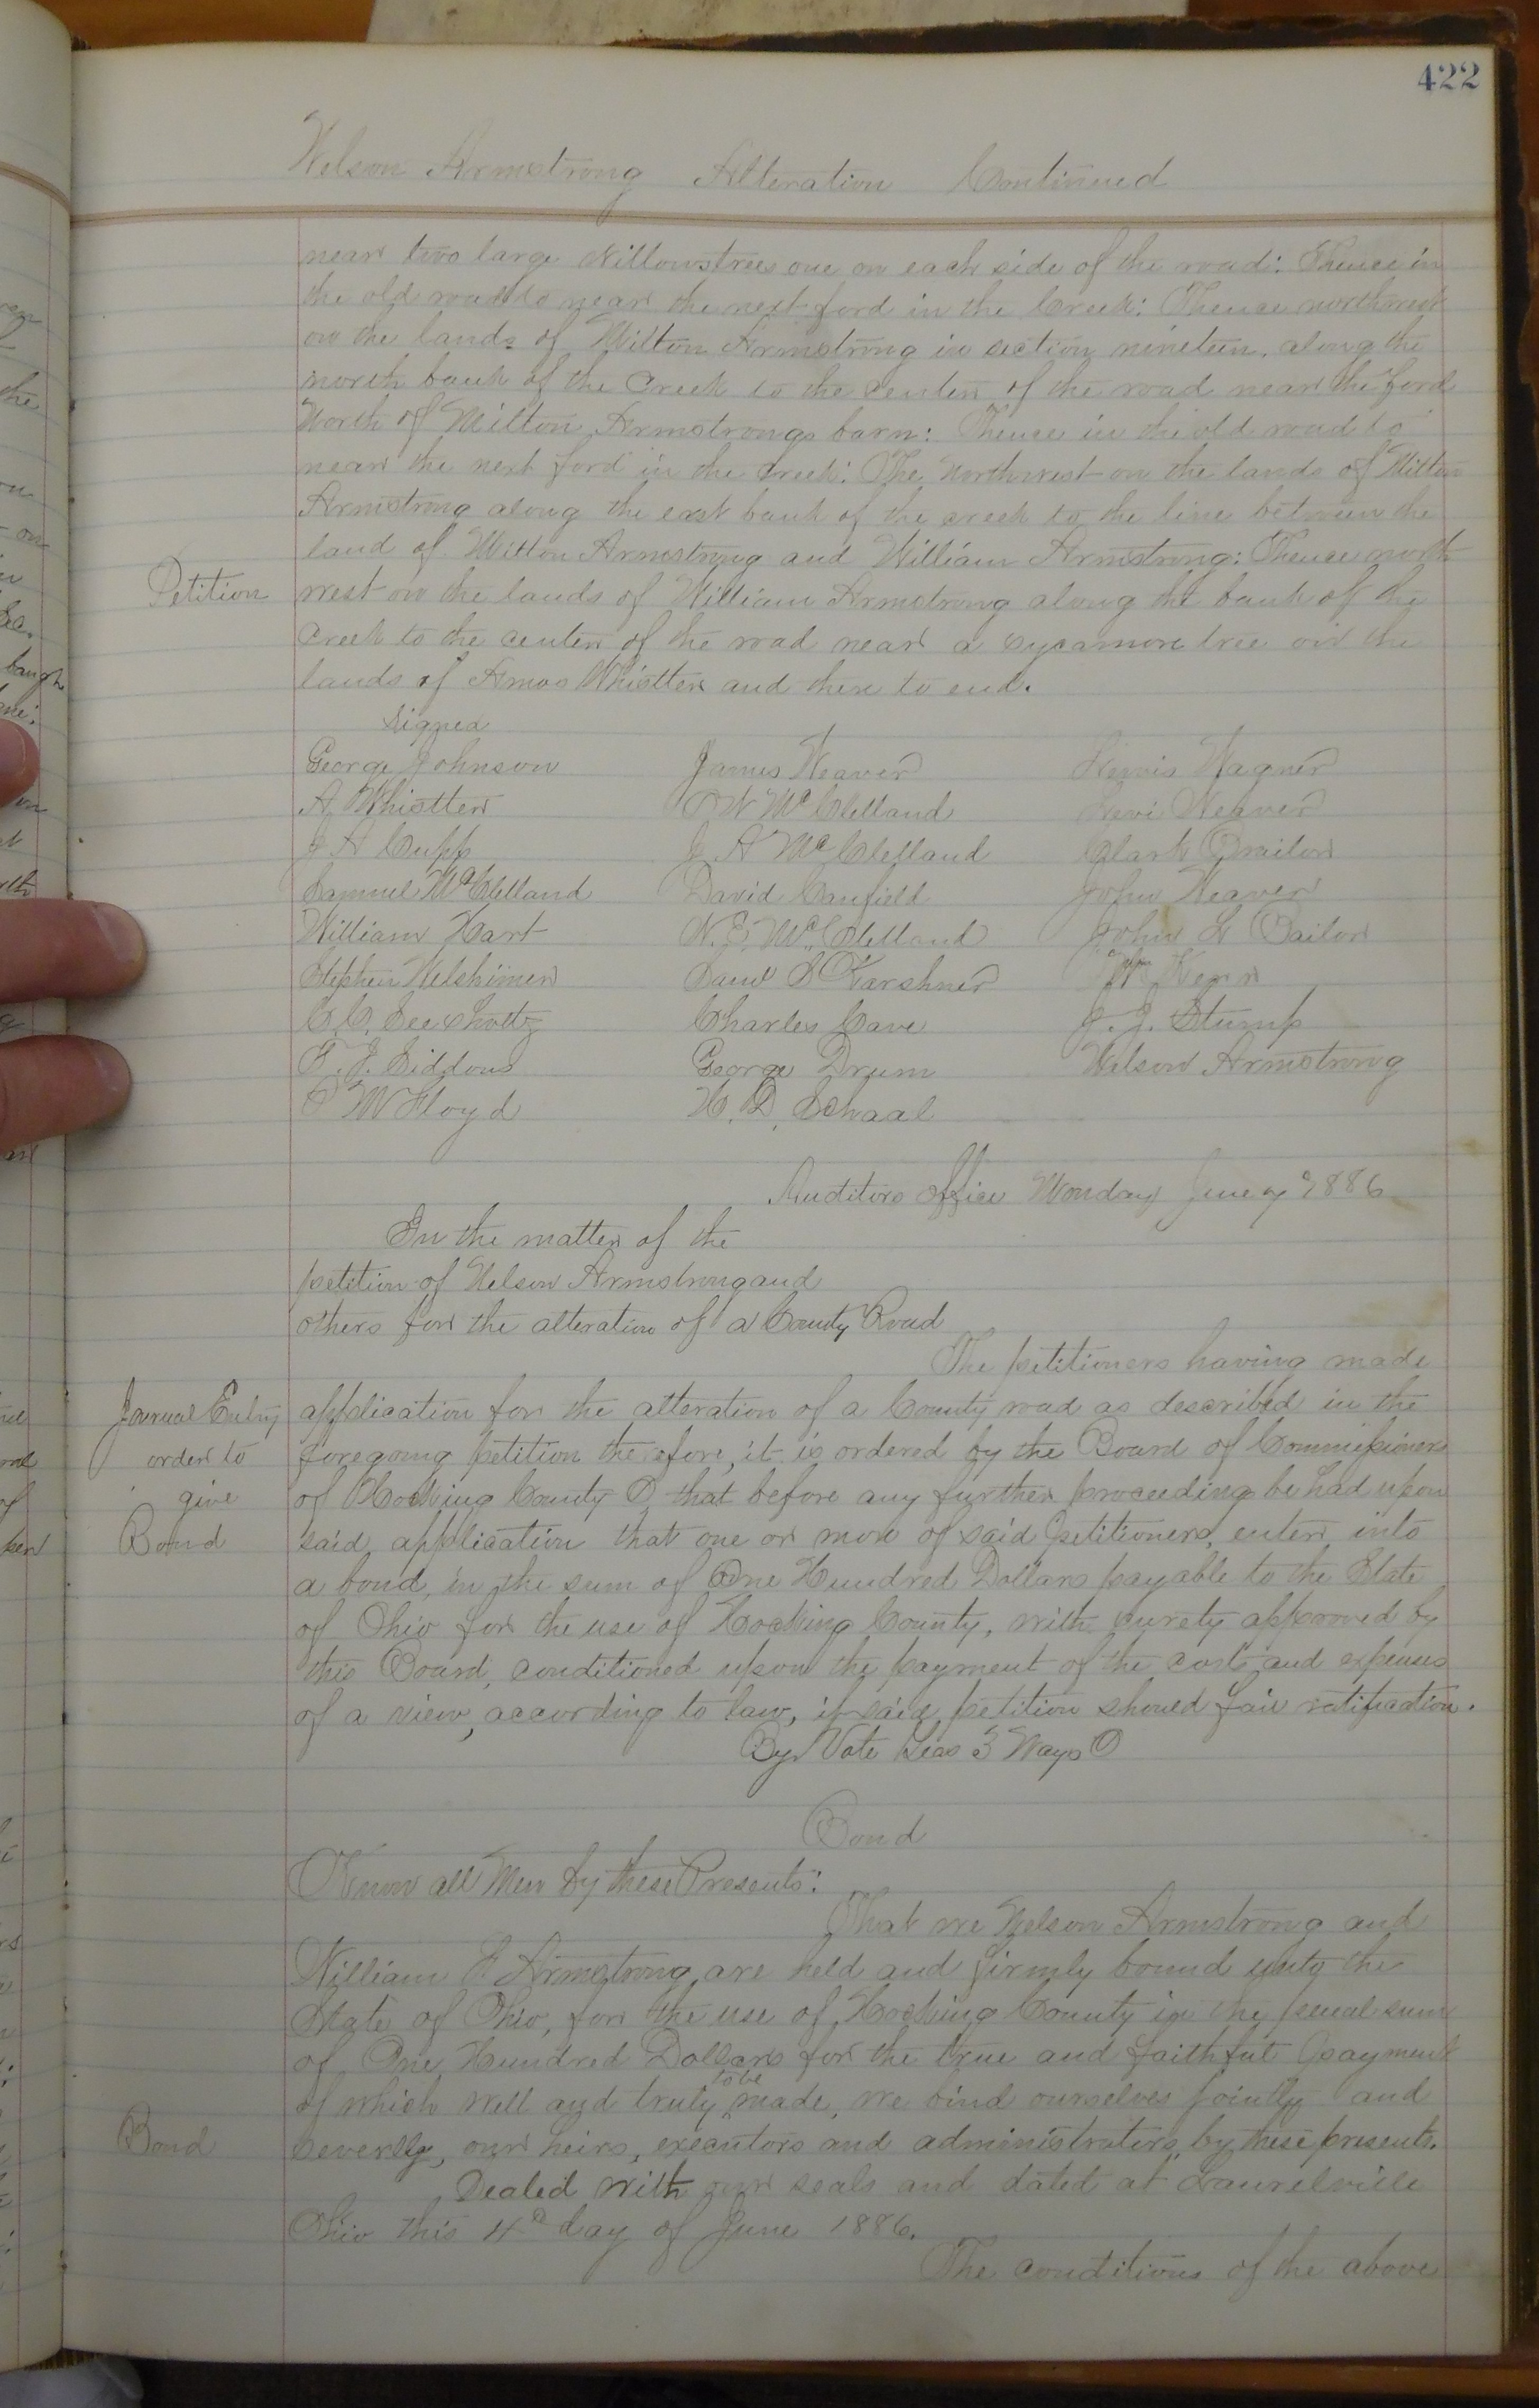 422
Nelson Armstrong Alteration Continued
near two large willowstrees one on each side of the road: Thence in
the old road to near the next ford in the Creek: Thence northwest
on the lands of Milton Armstrong in section nineteen, along the
north bank of the Creek to the center of the road near the ford
North of Milton Armstrongs barn: Thence in the old road to
near the next ford in the creek: The Northwest on the lands of Milton
Armstrong along the east bank of the creek to the line between the
land of Milton Armstrong and William Armstrong: Thence north
Petition
west on the lands of William Armstrong along the bank of the
Creek to the center of the road near a sycamore tree on the
lands of Amos Whistler and there to end.
Signed
George Johnson James Weaver Lewis Wagner
A Whistler McClelland Levi Weaver
J A Cupp J A McClelland Clark
Samuel McClelland David Canfield John Weaver
William Hart N. E. McClelland John
Stephen Welshimer Saml S Karshner Wm Kern
C. C. Charles Cave J. J. Stump
T. J. Siddons George Drum Nelson Armstrong
M Floyd H. D. Schaal
Auditors office Monday June 7 1886
In the matter of the
petition of Nelson Armstrong and
others for the alteration of a County Road
The petitioners having made
Journal Entry
order to
give
Bond
application for the alteration of a County road as described in the
foregoing petition therefore, it is ordered by the Board of Commissioners
of Hocking County O, that before any further proceeding be had upon
said application that one or more of said petitioners, enter into
a bond, in the sum of One Hundred Dollars payable to the State
of Ohio for the use of Hocking County, with surety approved by
this Board, conditioned upon the payment of the costs and expenses
of a view, according to law, if said petition should fail ratification.
By Vote Yeas 3 Nays O
Bond
Know all Men by these Presents:
That we Nelson Armstrong and
William F. Armstrong, are held and firmly bound unto the
State of Ohio, for the use of Hocking County in the penal sum
of One Hundred Dollars for the true and faithful payment
of which well and truly to be made, we bind ourselves jointly and
Bond
severlly, our heirs, executors and administrators, by these presents.
Sealed with our seals and dated at Laurelville
Ohio this 4th day of June 1886.
The conditions of the above